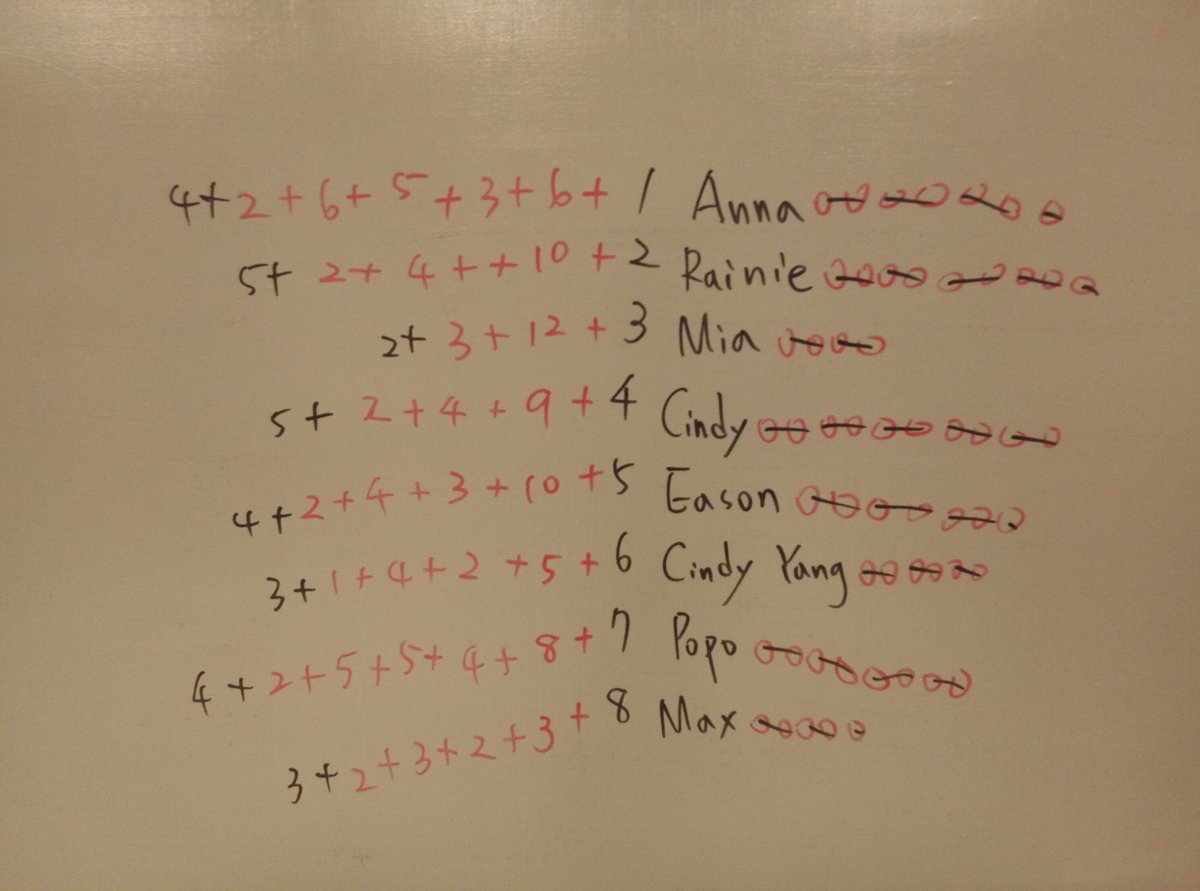 4+2+6+5+3+6+1 Anna
5+2+4++10+2 Rainie
2+3+12+3 Mia
5+2+4+9+4 Cindy
4+2+4+3+10+5 Eason
3+1+4+2+5+6 Cindy Yang
4+2+5+5+4+8+7 Popo
3+2+3+2+3+8 Max